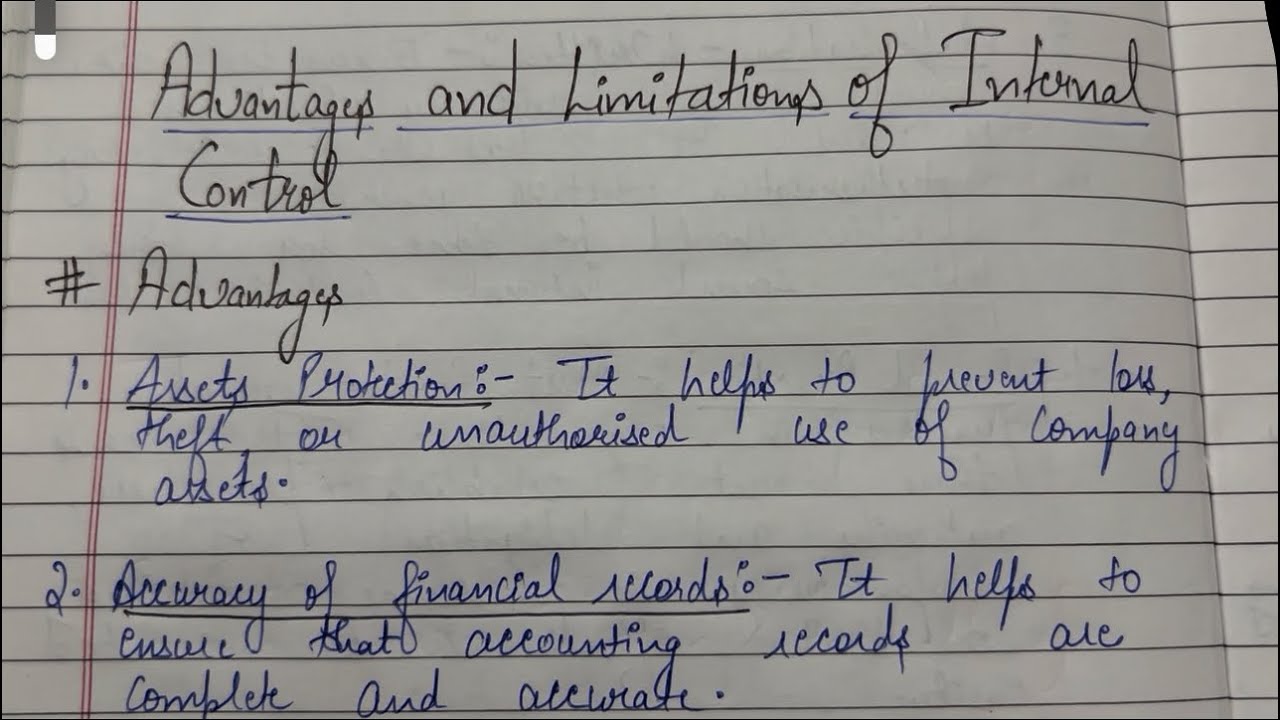 Advantages and Limitations of Internal
Control
# Advantages
1. Assets Protection:- It helps to prevent loss,
theft or unauthorised use of company
assets.
2. Accuracy of financial records:- It helps to
ensure that accounting records are
complete and accurate.